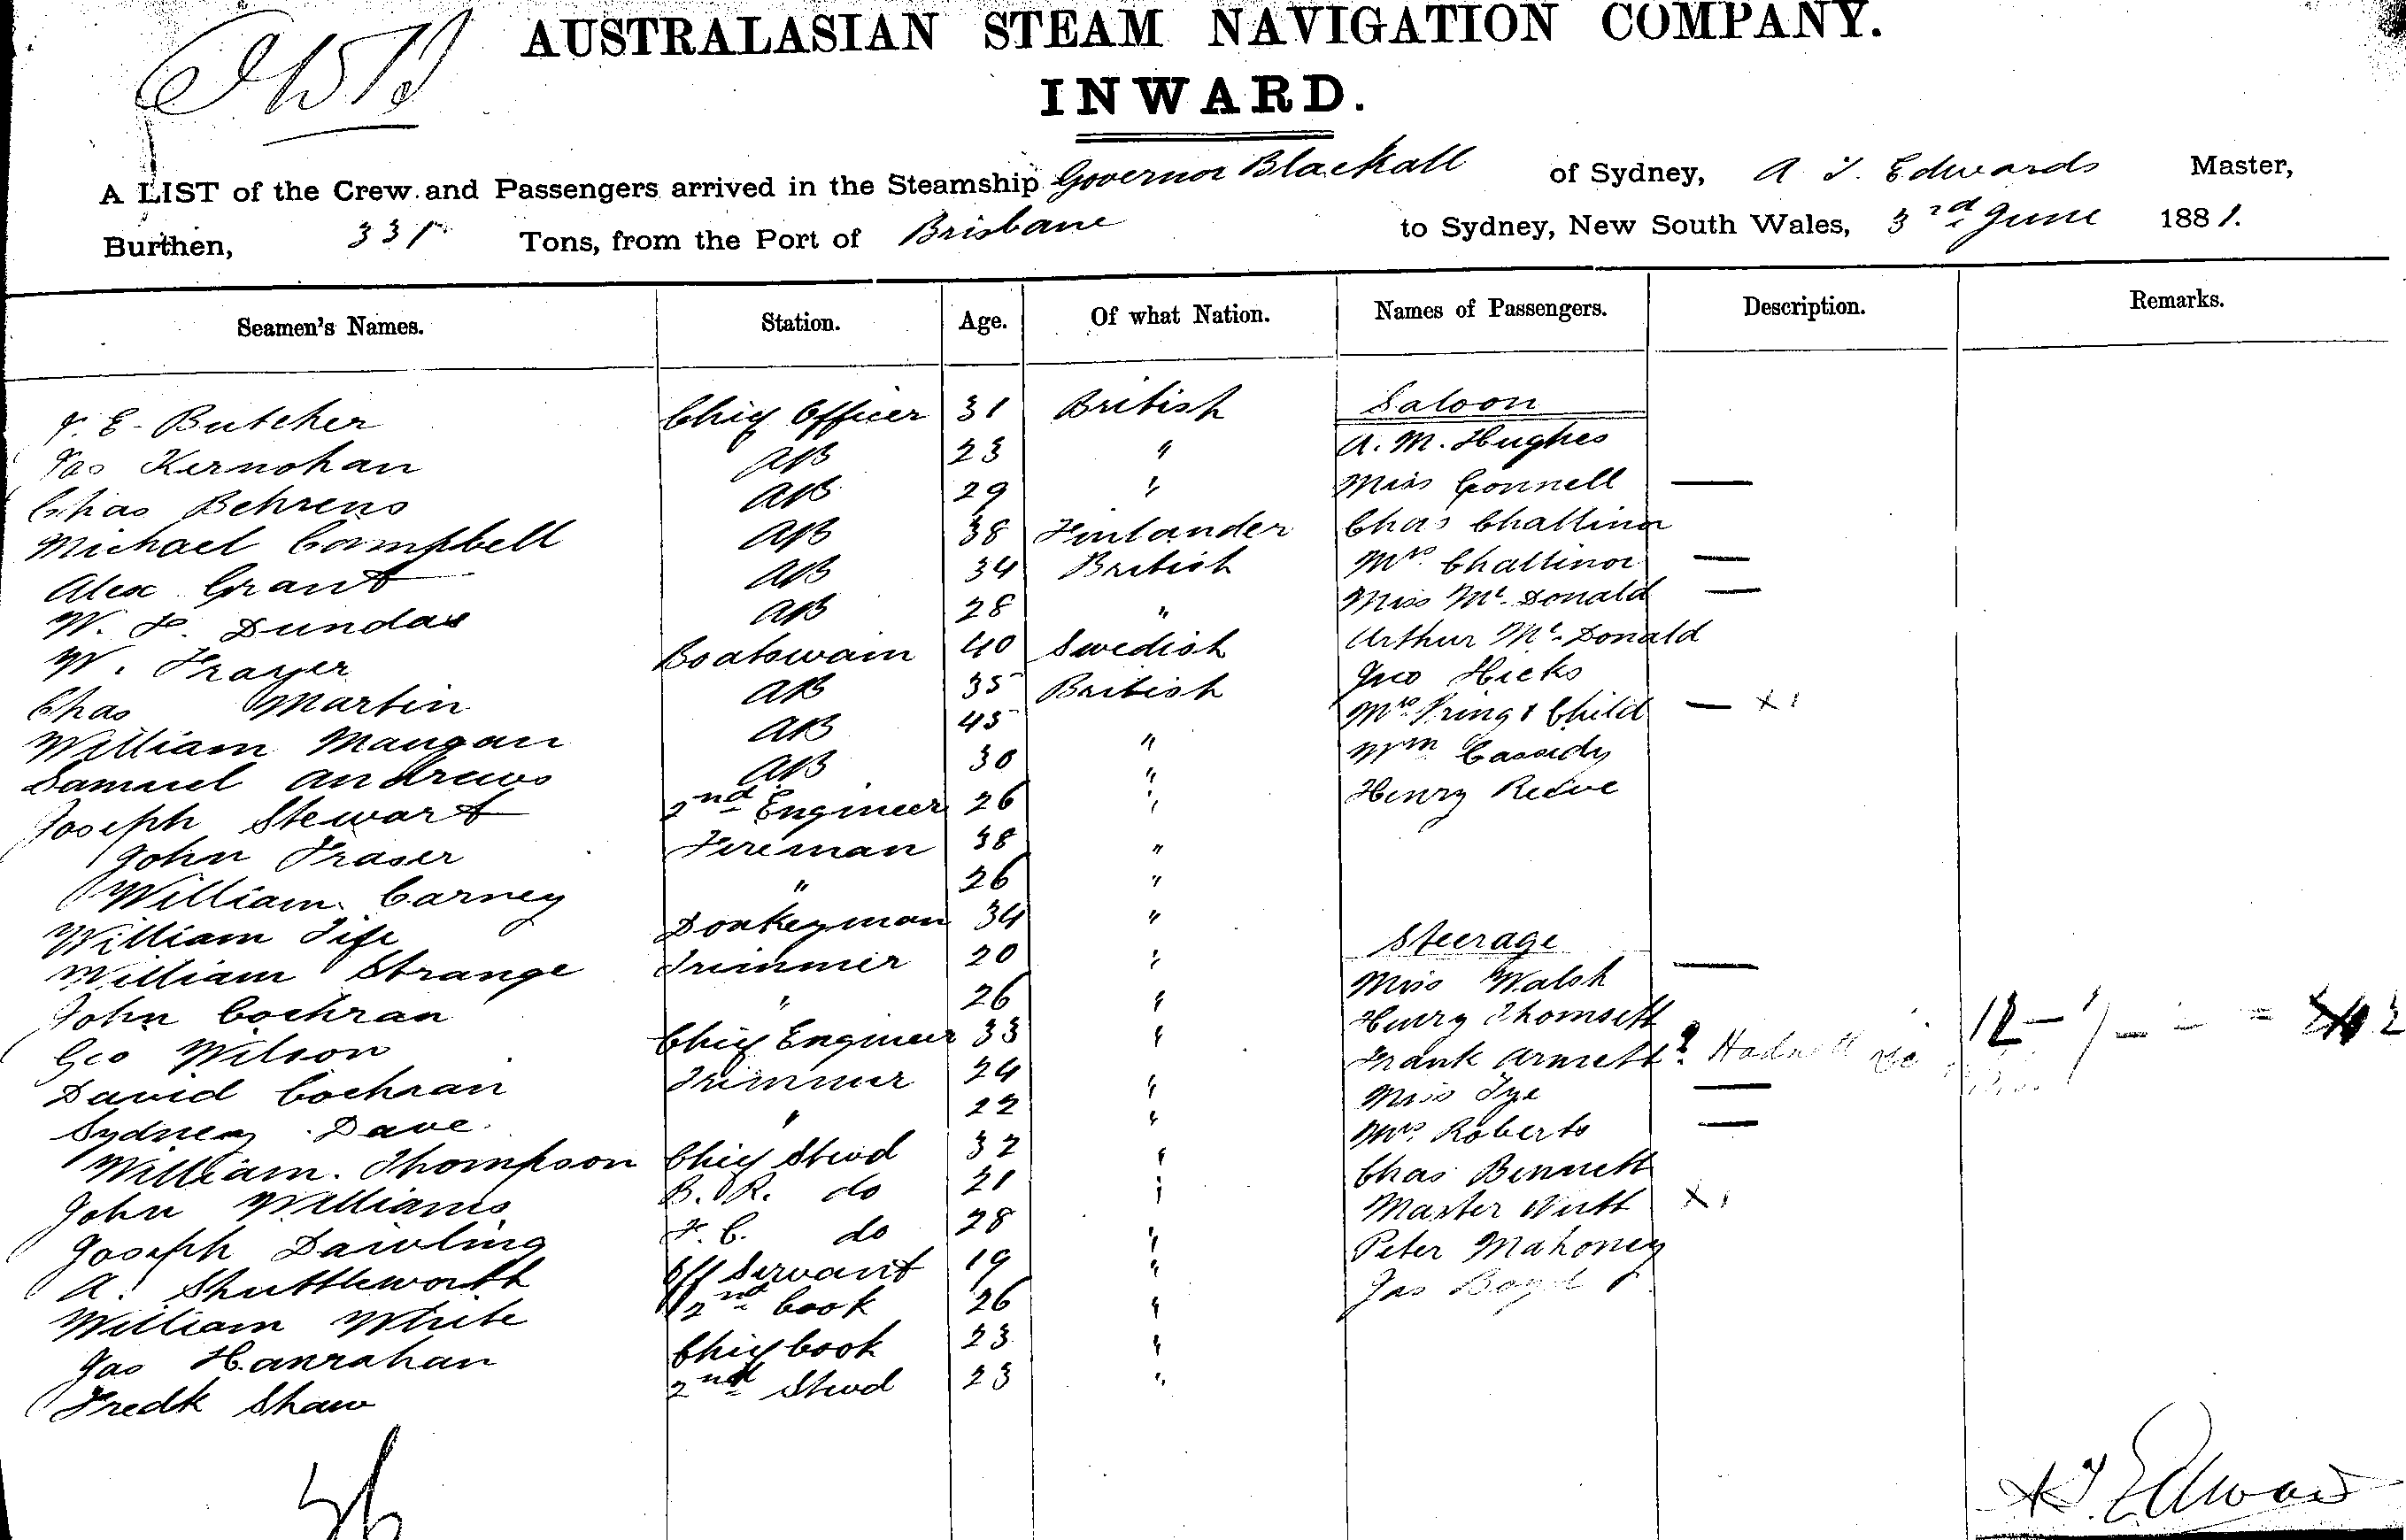 AUSTRALASIAN STEAM NAVIGATION COMPANY.
INWARD.
A LIST of the Crew and Passengers arrived in the Steamship Governor Blackall of Sydney, A T. Edwards Master,
Burthen, 331 Tons, from the Port of Brisbane to Sydney, New South Wales, 3rd June 1881.
Seamen's Names. Station. Age. Of what Nation. Names of Passengers. Description. Remarks.
E. Butcher Chief Officer 31 British Saloon
Jas Kernohan AB 23 " A. M. Hughes
Chas Behrens AB 29 " Miss Connell —
Michael Campbell AB 38 Finlander Chas Challinor
Alex Grant AB 34 British Mrs. Challinor —
W. F. Dundas AB 28 " Miss Mc Donald —
W. Frayer Boatswain 40 Swedish Arthur Mc Donald
Chas Martin AB 35 British Geo Hicks
William Mangan AB 45 " Mrs Pring & Child — X 1
Samuel Andrews AB 30 " Wm Cassidy
Joseph Stewart 2nd Engineer 26 " Henry Reeve
John Fraser Fireman 38 "
William Carney " 26 "
William Fife Donkeyman 34 " Steerage
William Strange Trimmer 20 " Miss Walsh —
John Cochran " 26 " Henry Thomsett
Geo Wilson Chief Engineer 33 " Frank Arnett ?
David Cochran Trimmer 24 " Miss Tye —
Sydney Dave " 22 " Mrs. Roberts —
William Thompson Chief Stewd 32 " Chas Bennett
John Williams B. R. do 21 " Master Nutt X 1
Joseph Dawling F. C. do 28 " Peter Mahoney
A. Shuttleworth Off Servant 19 " Jas Boyd
William White 2nd Cook 26 "
Jas Hanrahan Chief Cook 23 "
Fredk Shaw 2nd Stewd 23 "
26
A T. Edwards